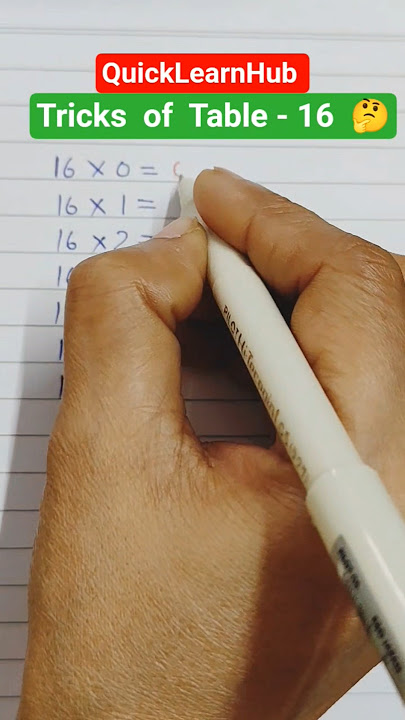 QuickLearnHub
Tricks of Table - 16 🤔
16 × 0 =
16 × 1 =
16 × 2 =
16
1
1
1
PILOT